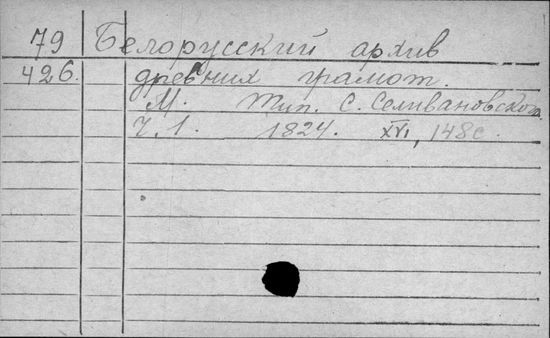 79 Белорусский архив
426. древних грамот.
М. Тип. С. Селивановского.
Ч. 1. 1824. XVI, 148 с.